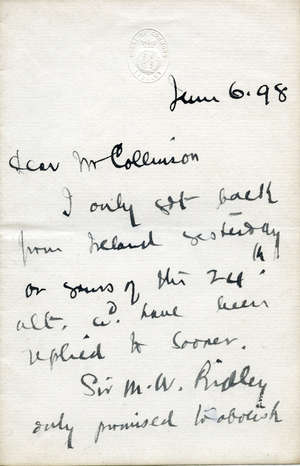 June 6. 98
Dear Mr Collinson
I only got back
from Ireland yesterday
or yours of the 24th
ult. wd. have been
replied to sooner.
Sir M. W. Ridley
only promised to abolish